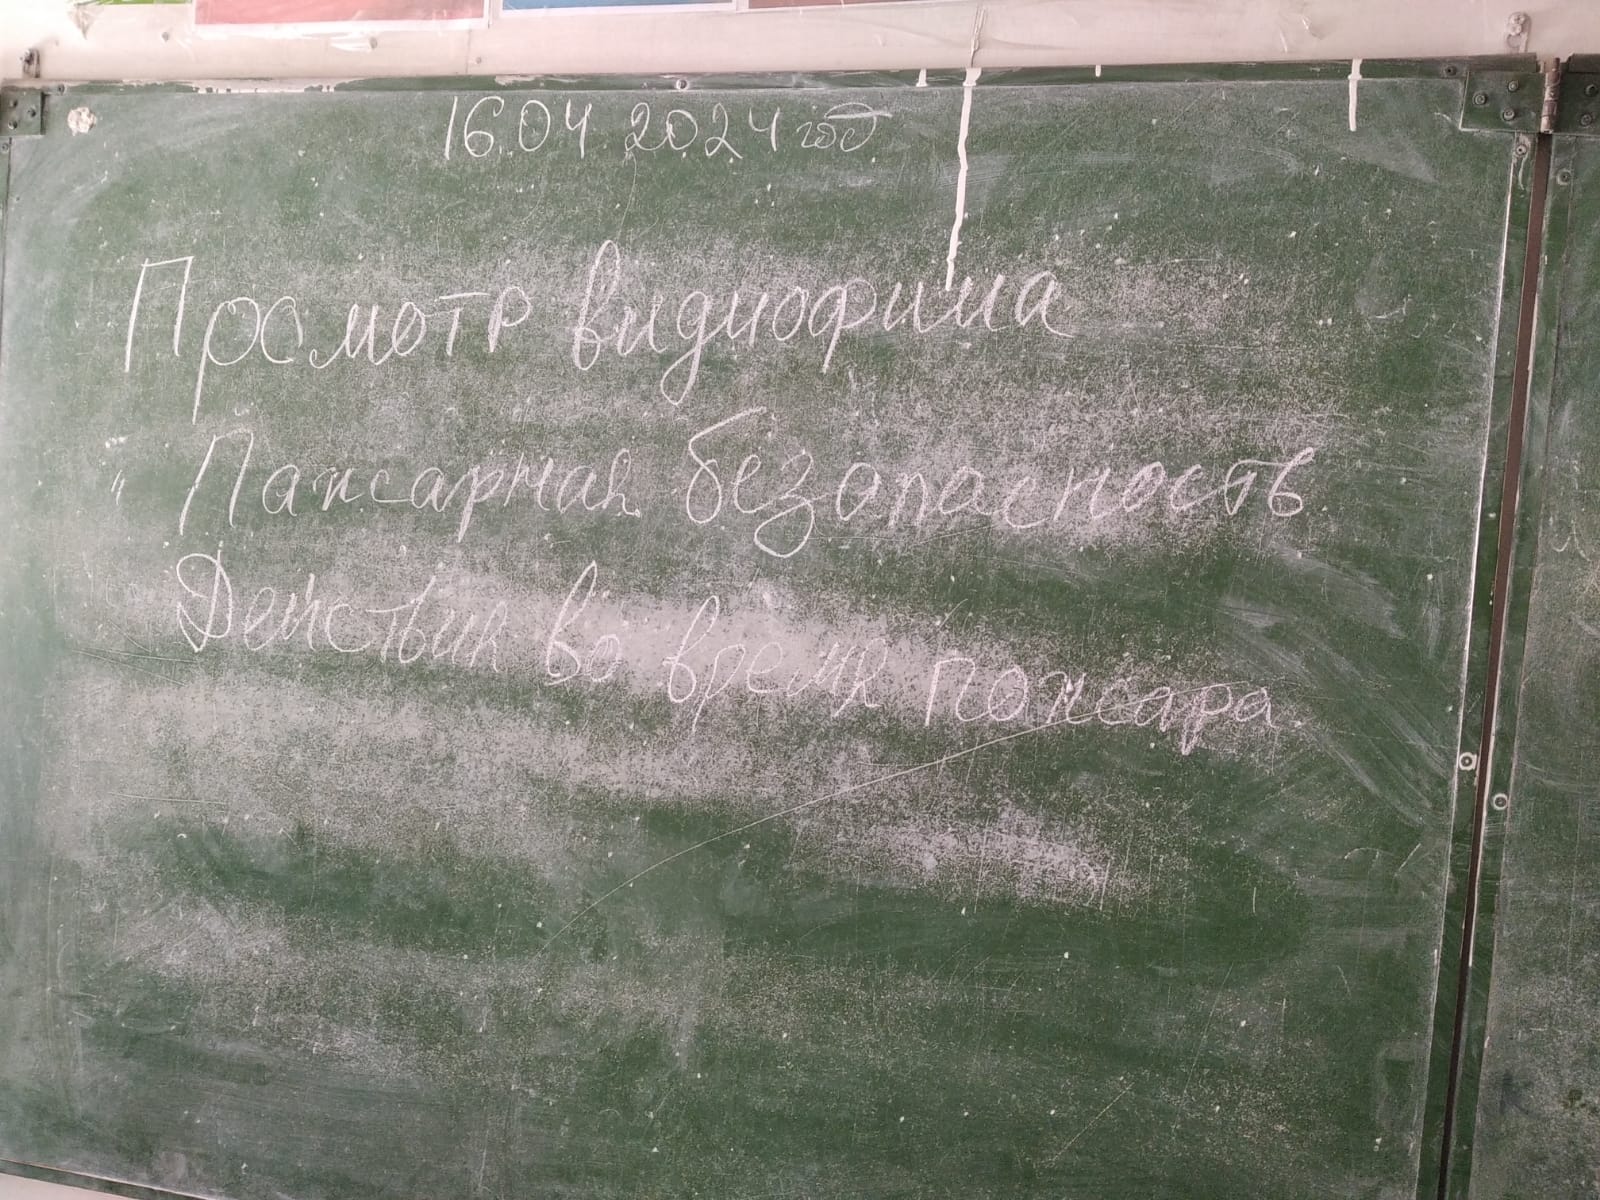 16.04.2024 год
Просмотр видиофима
" Пажарная безопасность
Действия во время пожсара